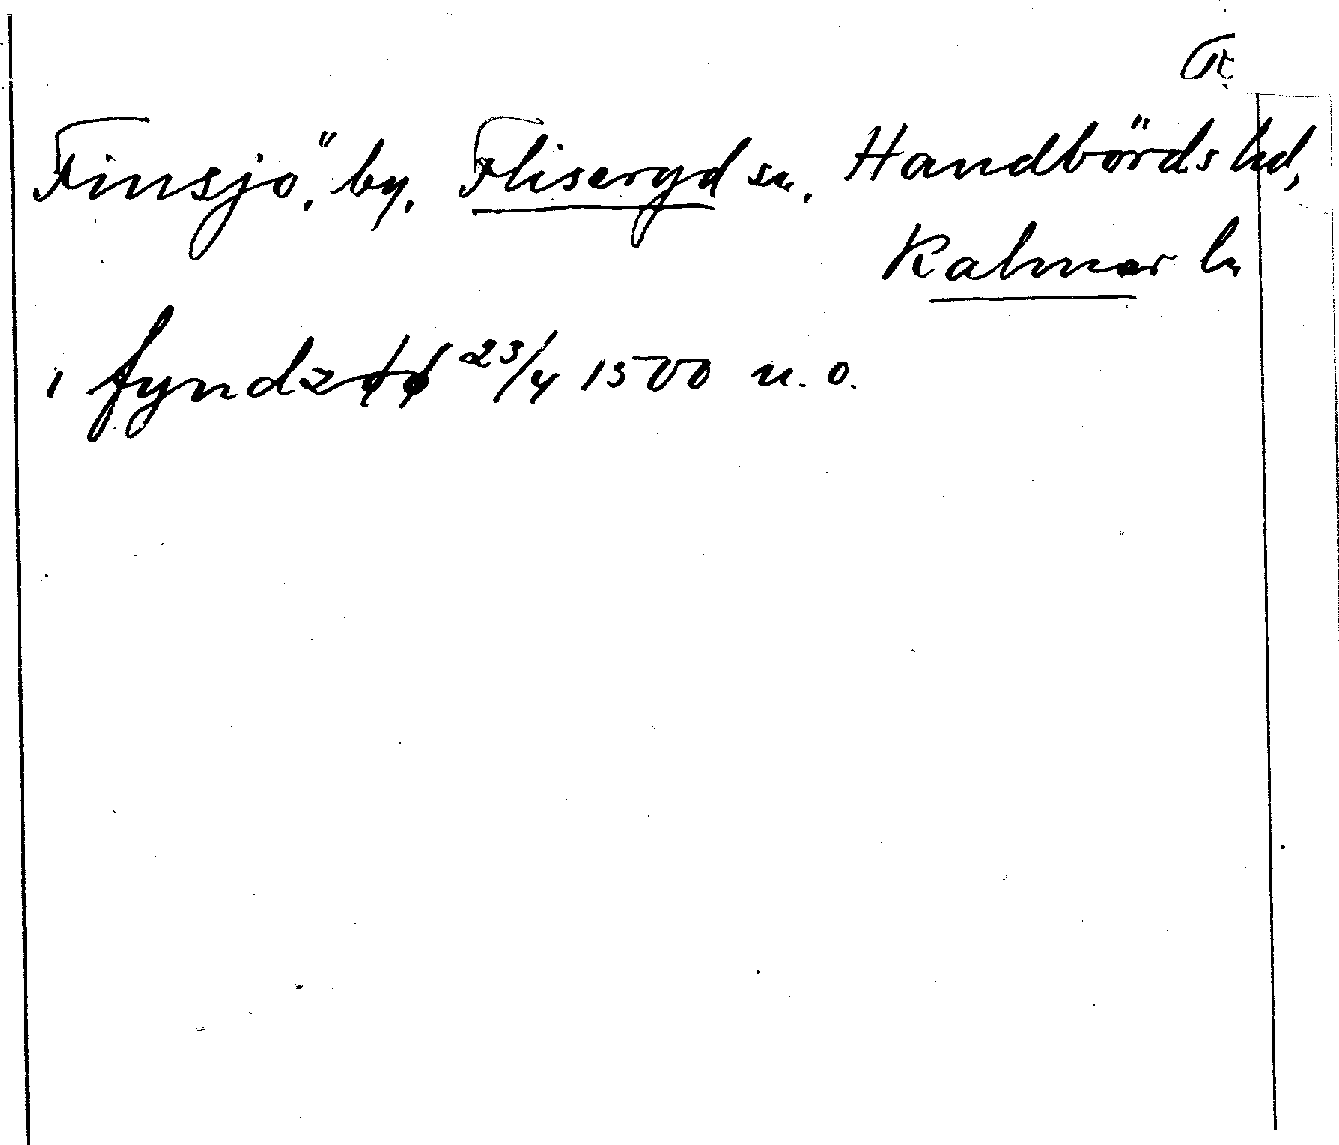 Finsjö, by, Fliseryd sn, Handbörds hd,
Kalmar ln
i fyndzøø 23/4 1500 u. o.